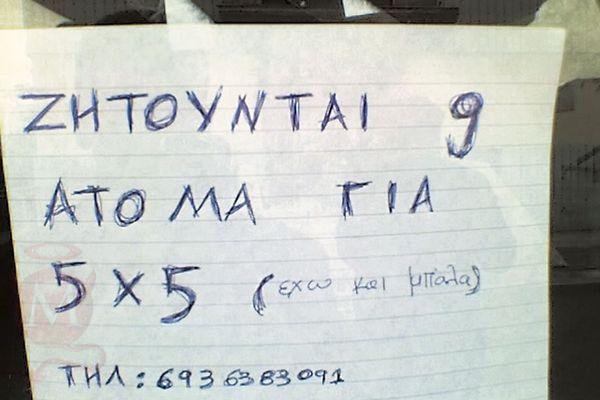 ΖΗΤΟΥΝΤΑΙ 9
ΑΤΟΜΑ ΓΙΑ
5 X 5 (εχω και μπαλα)
ΤΗΛ: 6936383091